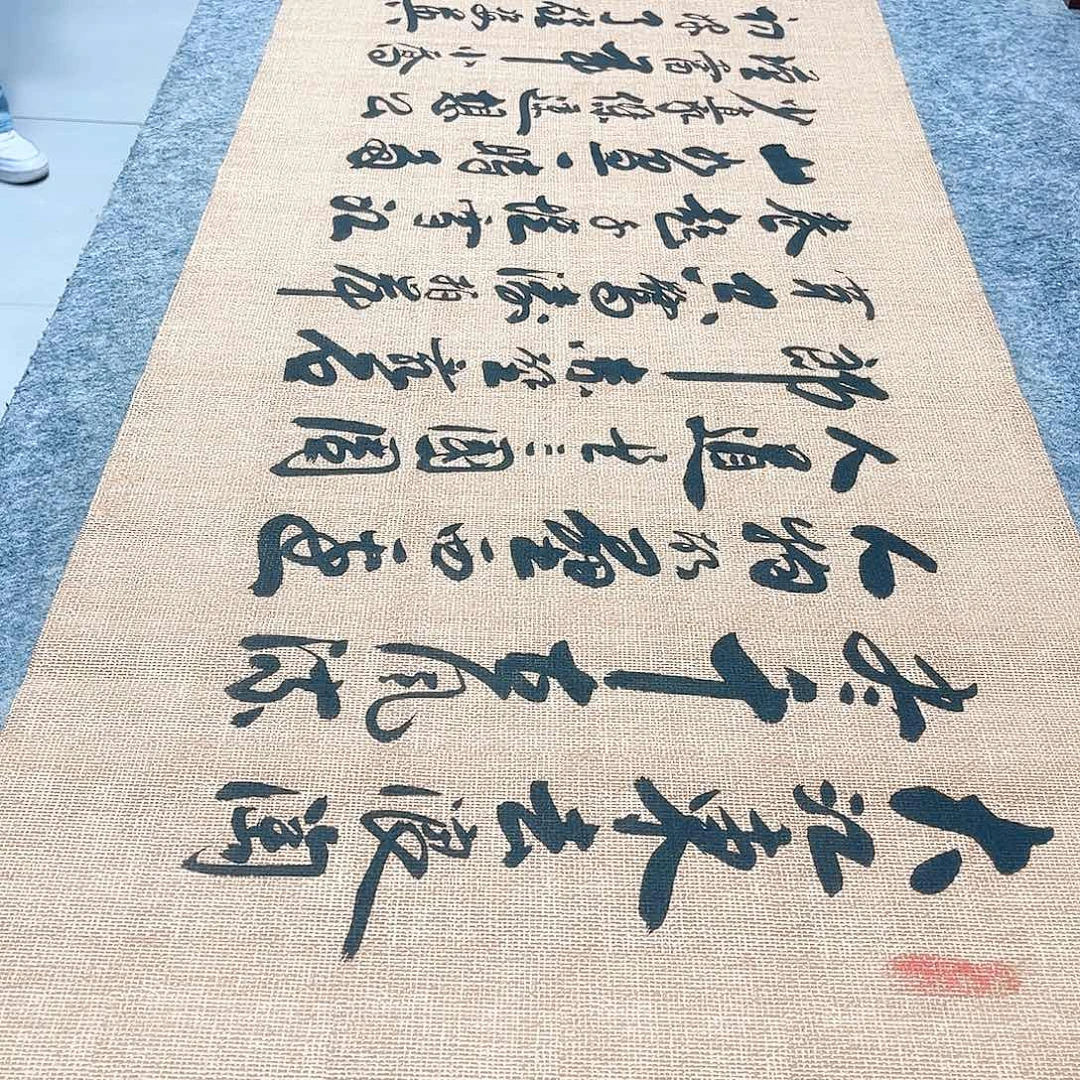 大江東去浪淘
尽千古風流
人物故壘西邊
人道是三國周
郎赤壁亂石
穿空驚濤拍岸
卷起千堆雪江
山如畫一時多
少豪傑遙想公
瑾當年小喬
初嫁了雄姿英